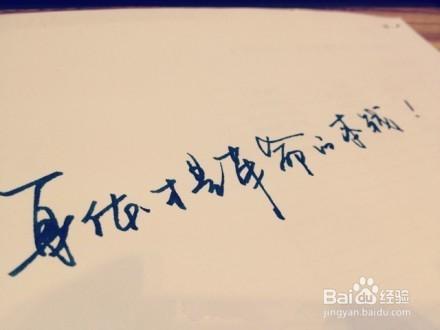 身体才是革命的本钱！
Baidu 经验
jingyan.baidu.com